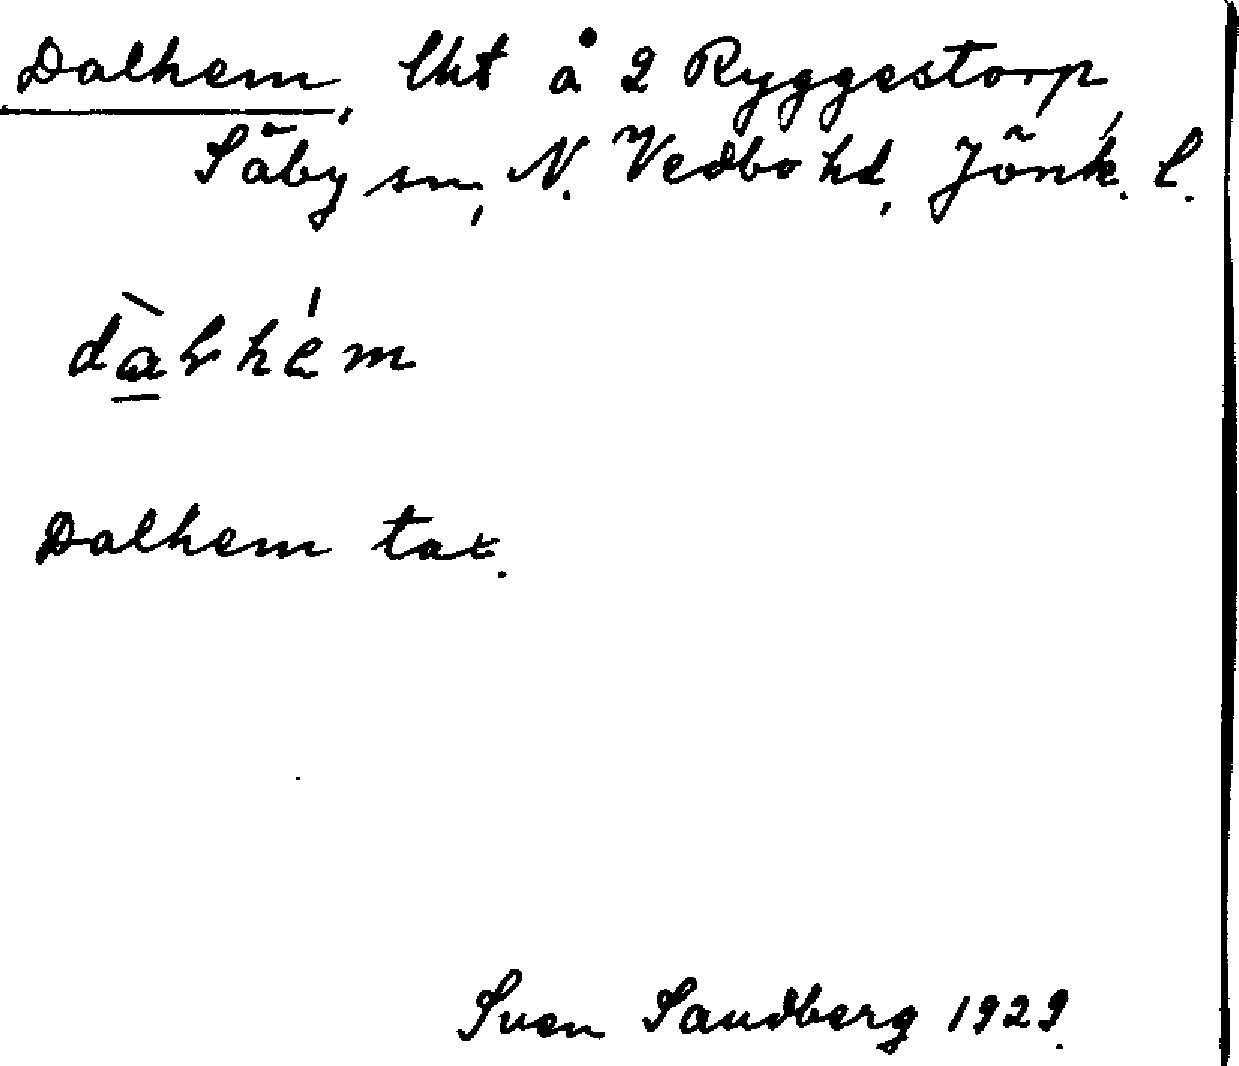 Dalhem, lht å 2 Ryggestorp,
Säby sn, N. Vedbo hd, Jönk. l.
Dalhem tax.
Sven Sandberg 1929.